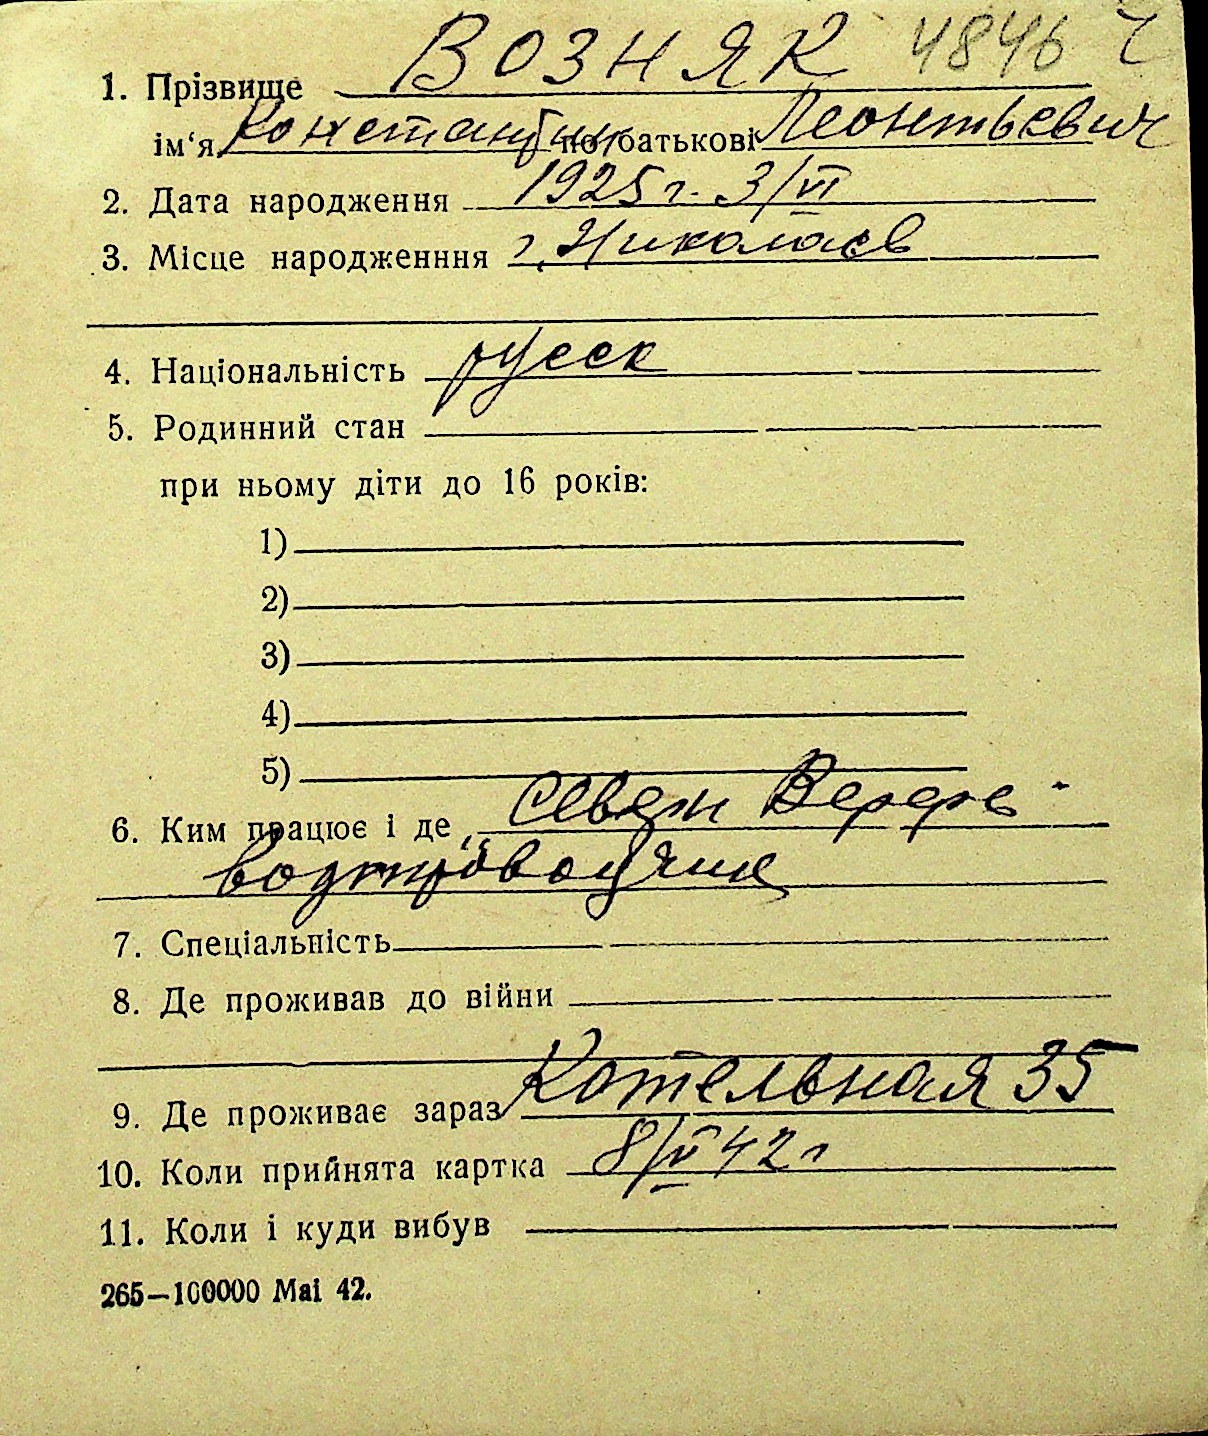 4846
1. Прізвище ВОЗНЯК
ім‘я Константин по батькові Леонтьевич
2. Дата народження 1925 г. 3/VI
3. Місце народженння г. Николаев
4. Національність русск
5. Родинний стан
при ньому діти до 16 років:
1)
2)
3)
4)
5)
6. Ким працює і де Севен Верфь
7. Спеціальність
8. Де проживав до війни
9. Де проживає зараз Котельная 35
10. Коли прийнята картка 42 г
11. Коли і куди вибув
265—100000 Mai 42.